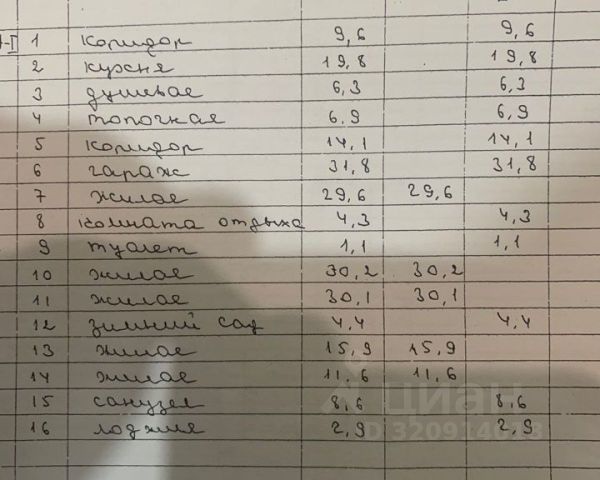 -I 1 коридор 9,6 9,6
2 кухня 19,8 19,8
3 душевая 6,3 6,3
4 топочная 6,9 6,9
5 коридор 14,1 14,1
6 гараж 31,8 31,8
7 жилая 29,6 29,6
8 комната отдыха 4,3 4,3
9 туалет 1,1 1,1
10 жилая 30,2 30,2
11 жилая 30,1 30,1
12 зимний сад 4,4 4,4
13 жилая 15,9 15,9
14 жилая 11,6 11,6
15 санузел 8,6 8,6
16 лоджия 2,9 2,9
циан
ID 320914013